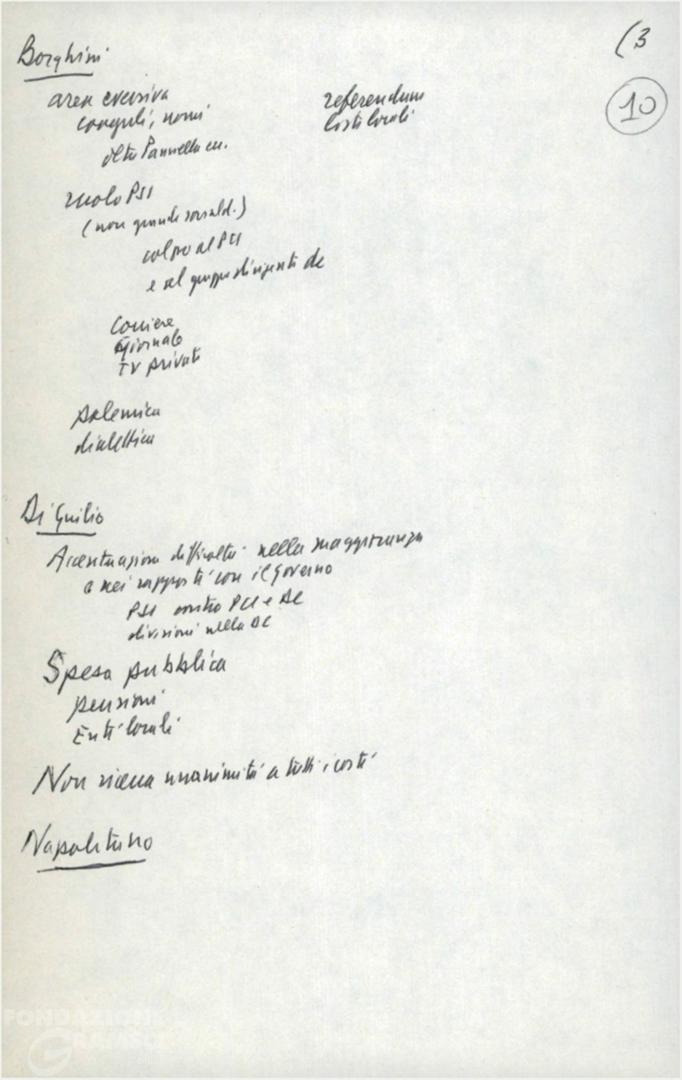 (3
10
Borghini
area eversiva
coaguli, nomi
oltre Pannella ecc.
referendum
liste locali
ruolo PSI
(non grande sociald.)
colpo al PCI
e al gruppo dirigente dc
Corriere
Giornale
TV private
polemica
dialettica
Di Giulio
Accentuazione difficoltà nella maggioranza
e nei rapporti con il governo
PSI contro PCI e DC
divisioni nella DC
Spesa pubblica
pensioni
Enti locali
Non ricerca unanimità a tutti i costi
Napolitano
FONDAZIONE
GRAMSCI